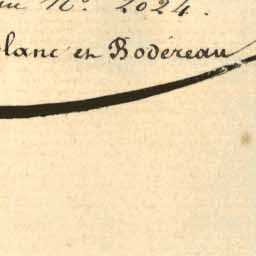 Nº 2024.
blanc en Bodéreau